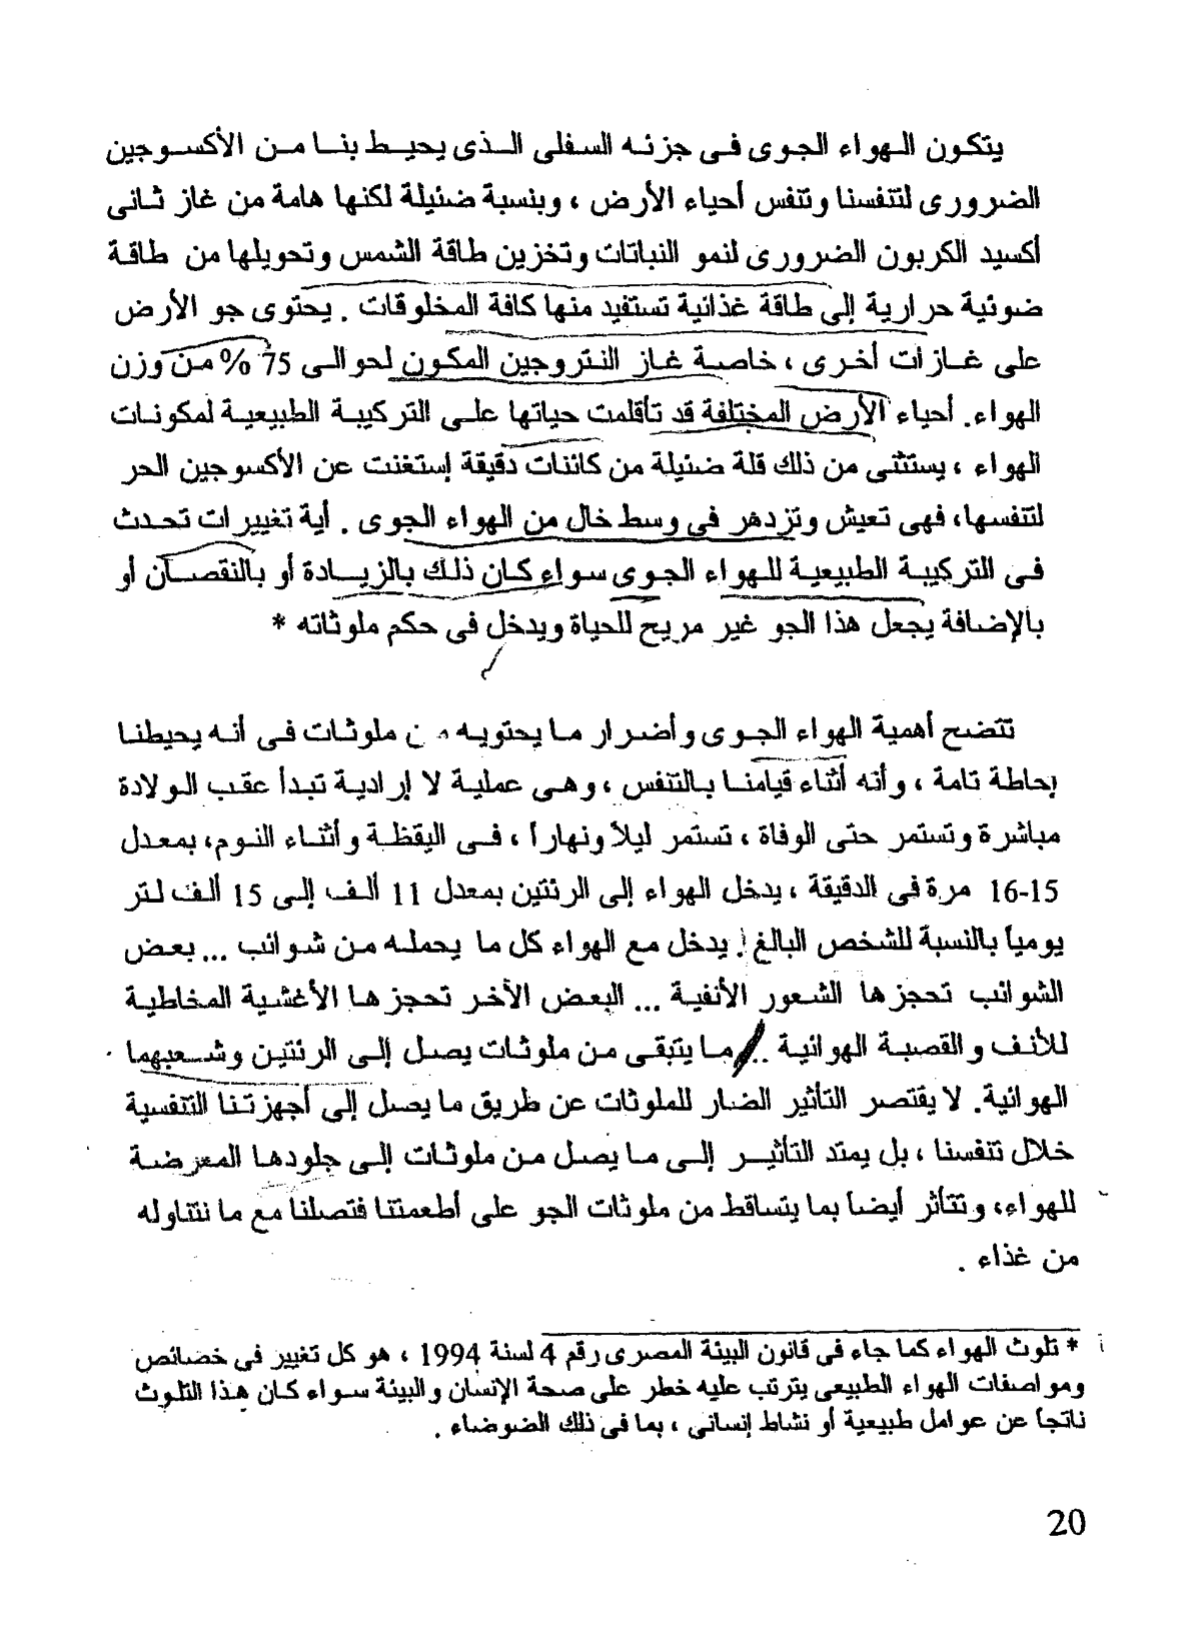 يتكون الهواء الجوى فى جزئه السفلى الذى يحيط بنا من الأكسوجين
الضرورى لتنفسنا وتنفس أحياء الأرض ، وبنسبة ضئيلة لكنها هامة من غاز ثانى
أكسيد الكربون الضرورى لنمو النباتات وتخزين طاقة الشمس وتحويلها من طاقة
ضوئية حرارية إلى طاقة غذائية تستفيد منها كافة المخلوقات . يحتوى جو الأرض
على غازات أخرى ، خاصة غاز النتروجين المكون لحوالى 75 % من وزن
الهواء. أحياء الأرض المختلفة قد تأقلمت حياتها على التركيبة الطبيعية لمكونات
الهواء ، يستثنى من ذلك قلة ضئيلة من كائنات دقيقة إستغنت عن الأكسوجين الحر
لتنفسها، فهى تعيش وتزدهر فى وسط خال من الهواء الجوى . أية تغييرات تحدث
فى التركيبة الطبيعية للهواء الجوى سواء كان ذلك بالزيادة أو بالنقصان أو
بالإضافة يجعل هذا الجو غير مريح للحياة ويدخل فى حكم ملوثاته *
تتضح أهمية الهواء الجوى وأضرار ما يحتويه من ملوثات فى أنه يحيطنا
إحاطة تامة ، وأنه أثناء قيامنا بالتنفس ، وهى عملية لا إرادية تبدأ عقب الولادة
مباشرة وتستمر حتى الوفاة ، تستمر ليلاً ونهاراً ، فى اليقظة وأثناء النوم، بمعدل
15-16 مرة فى الدقيقة ، يدخل الهواء إلى الرئتين بمعدل 11 ألف إلى 15 ألف لتر
يومياً بالنسبة للشخص البالغ. يدخل مع الهواء كل ما يحمله من شوائب ... بعض
الشوائب تحجزها الشعور الأنفية ... البعض الأخر تحجزها الأغشية المخاطية
للأنف والقصبة الهوائية .. ما يتبقى من ملوثات يصل إلى الرئتين وشعبهما
الهوائية. لا يقتصر التأثير الضار للملوثات عن طريق ما يصل إلى أجهزتنا التنفسية
خلال تنفسنا ، بل يمتد التأثير إلى ما يصل من ملوثات إلى جلودها المعرضة
للهواء، وتتأثر أيضاً بما يتساقط من ملوثات الجو على أطعمتنا فتصلنا مع ما نتناوله
من غذاء .
* تلوث الهواء كما جاء فى قانون البيئة المصرى رقم 4 لسنة 1994 ، هو كل تغيير فى خصائص
ومواصفات الهواء الطبيعى يترتب عليه خطر على صحة الإنسان والبيئة سواء كان هذا التلوث
ناتجاً عن عوامل طبيعية أو نشاط إنسانى ، بما فى ذلك الضوضاء .
20